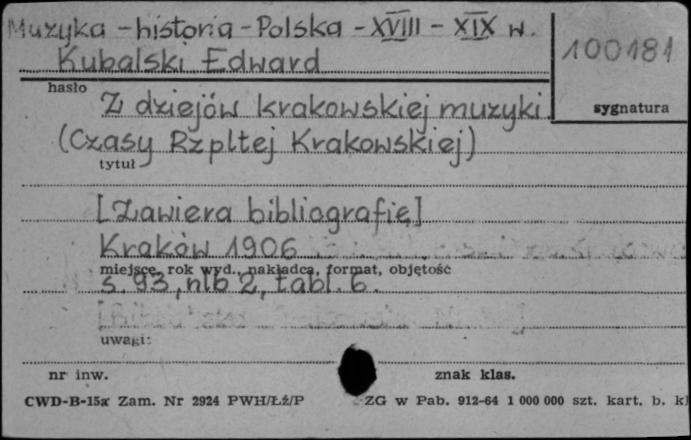 Muzyka - historia - Polska - XVIII - XIX w.
100181
Kubalski Edward
hasło
Z dziejów krakowskiej muzyki.
sygnatura
(Czasy Rzpltej Krakowskiej)
tytuł
[Zawiera bibliografię]
Kraków 1906
miejsce, rok wyd., nakładca, format, objętość
s. 93, nlb 2, tabl. 6.
uwagi:
nr inw.
znak klas.
CWD-B-15a Zam. Nr 2924 PWH/Łź/P
ZG w Pab. 912-64 1 000 000 szt. kart. b. kl